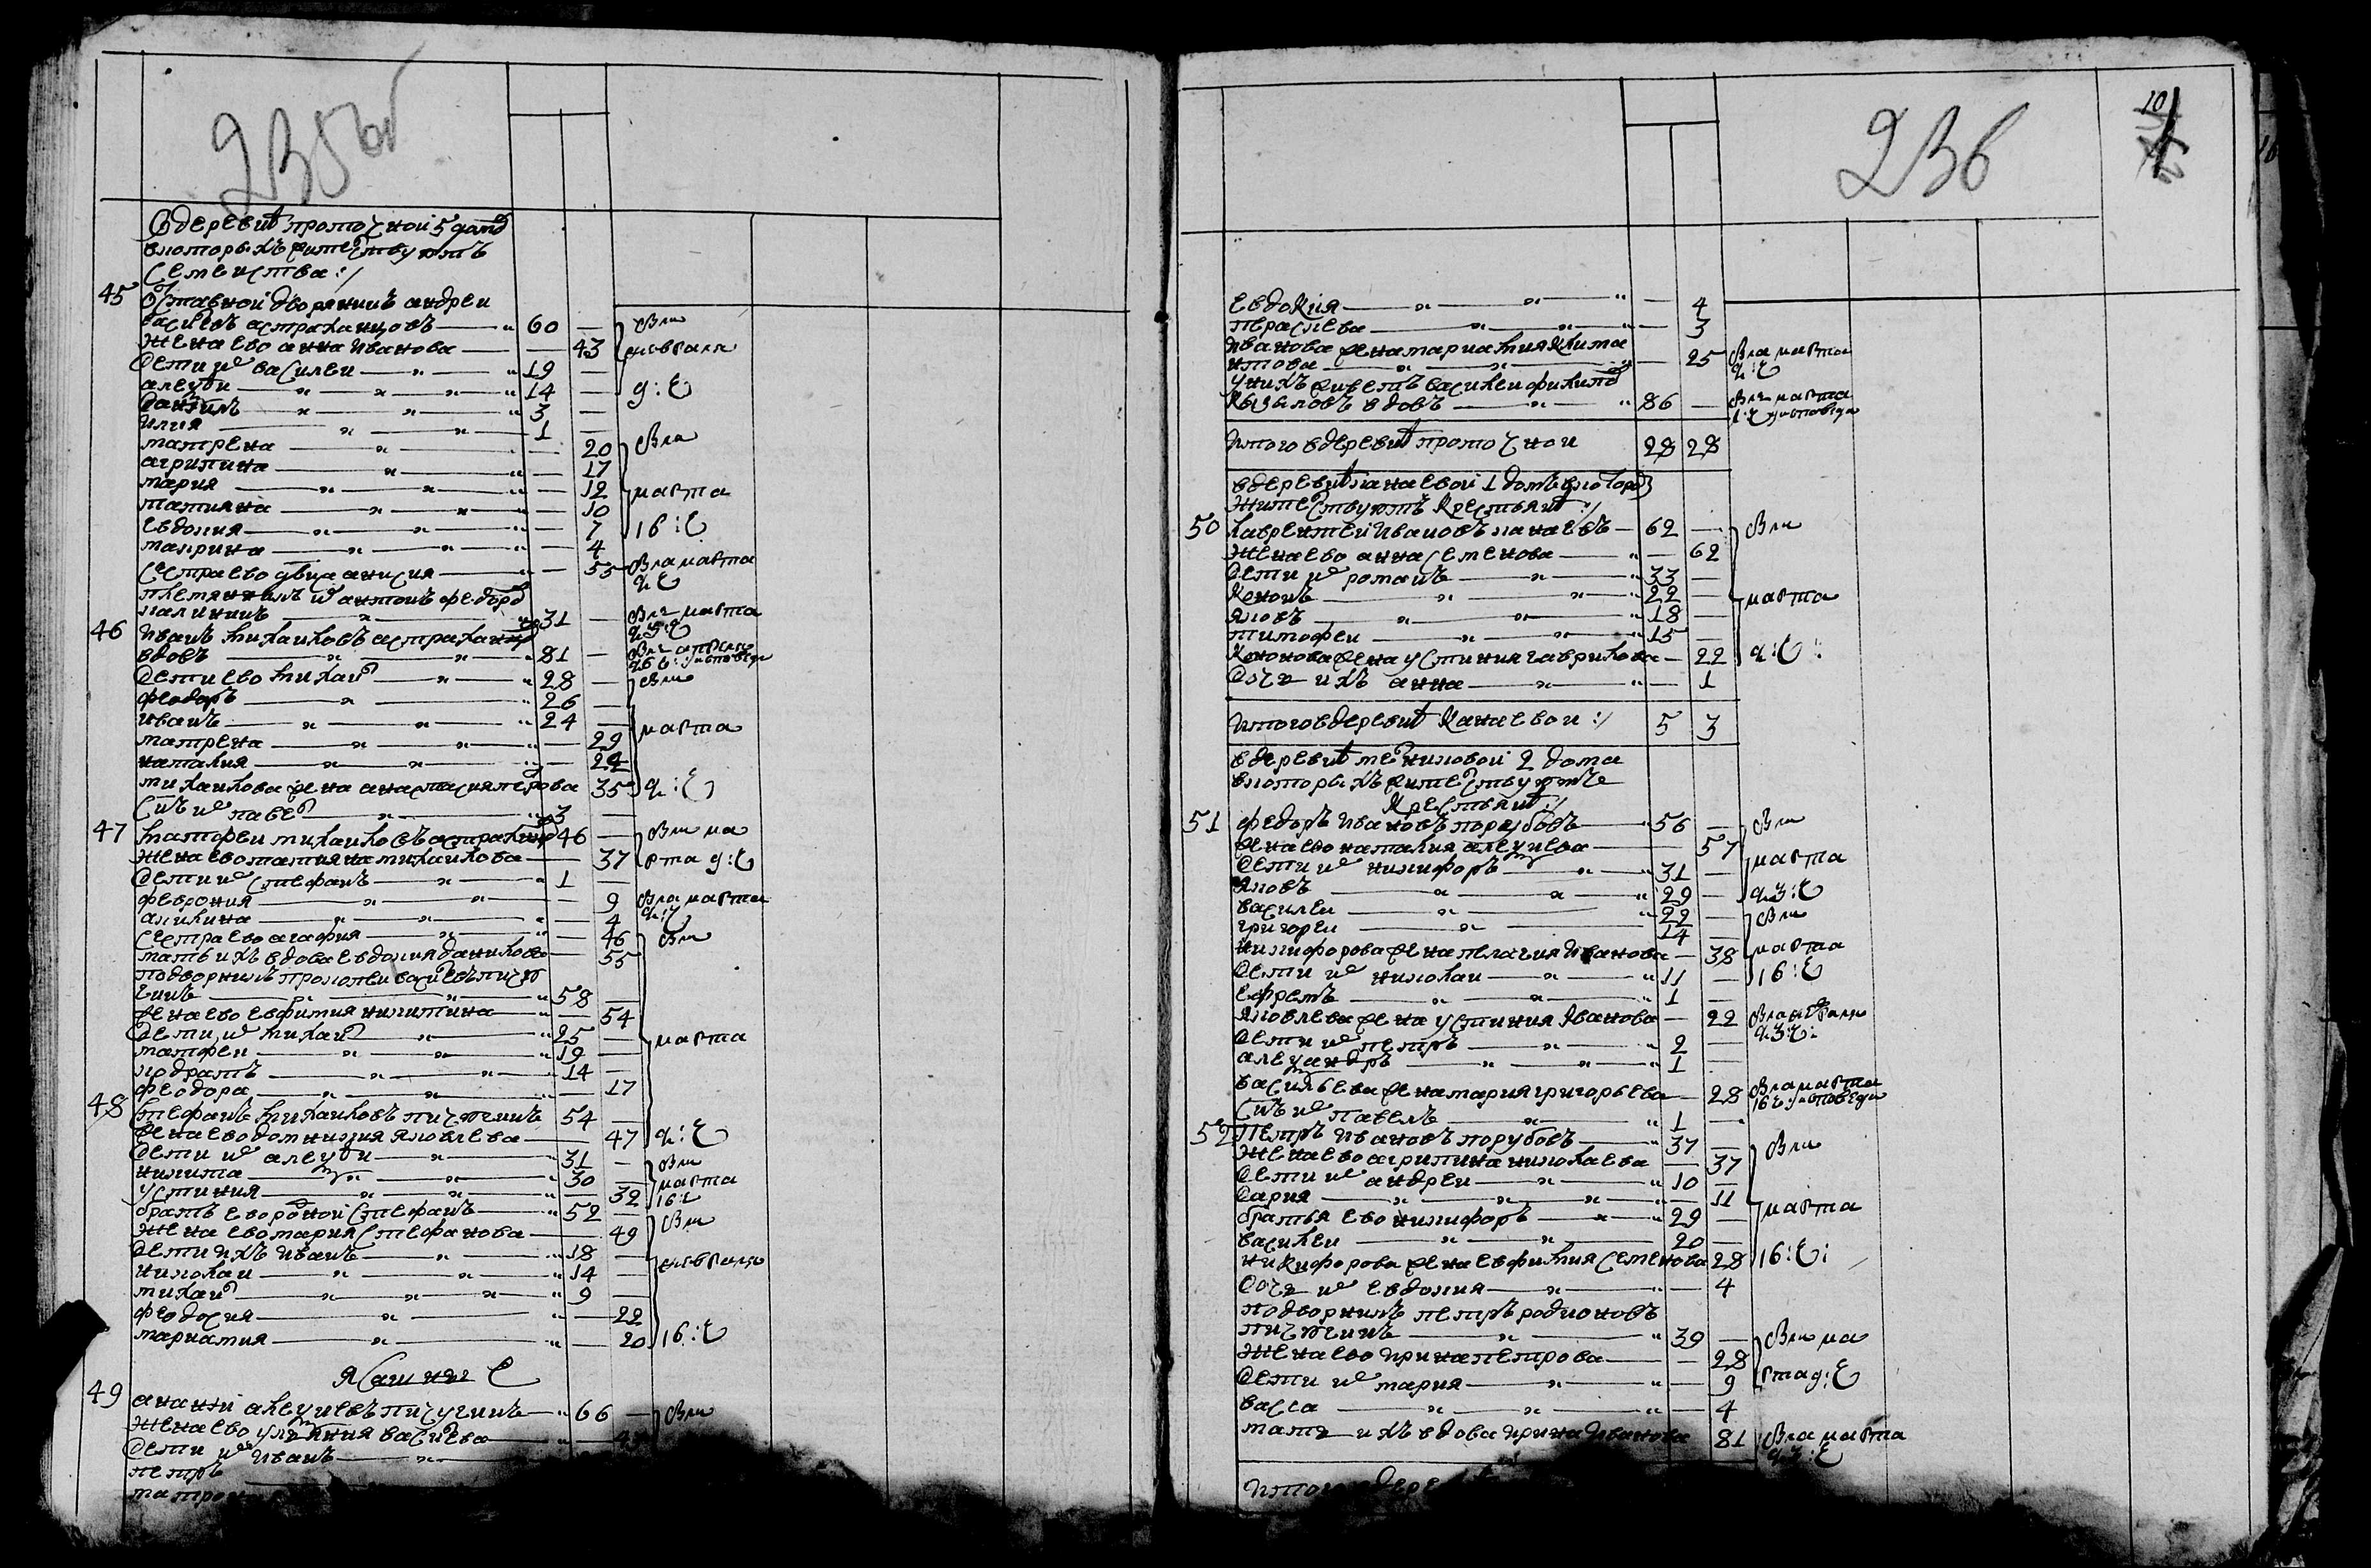 235 об
В деревнѣ проточной 5 домѡ
вкоторыхъ жителствуютъ
Семейства :/
45 Отставной дворянинъ андреи
василевъ астраханцовъ — 60 —
жена ево анна иванова — 43
Дети иⷯ василеи — 19 —
алеѯеи — 14 —
даниилъ — 3 —
илия — 1 —
матрена — 20
агрипина — 17
мария — 12
татияна — 10
евдокия — 7
маврина — 4
Сестра ево двца анисия — 55
племянникъ иⷯ антонъ федорѡ
калининъ — 31 —
46 Иванъ михаиловъ астраханцѡ
вдовъ — 81 —
Дети ево михаил — 28 —
феодоръ — 26 —
иванъ — 24 —
матрена — 29
наталия — 24
михаилова жена анастасия петрова 35
Снъ иⷯ павел — 3 —
47 матфеи михаиловъ астраханцѡ 46 —
жена ево татияна михаилова — 37
Дети иⷯ стефанъ — 1 —
феврония — 9
акилина — 4
Сестра ево агафия — 46
мать ихъ вдова евдокия данилова — 55
подворникъ прокопеи василевъ пичю
гинъ — 58 —
жена ево евфимия никитина — 54
Дети иⷯ михаил — 25 —
матфеи — 19 —
кодратъ — 14 —
феодора — 17
48 Стефанъ михаиловъ пичюгинъ 54 —
жена ево домникия яковлева — 47
Дети иⷯ алеѯеи — 31 —
никита — 30 —
устиния — 32
братъ ево родной Стефанъ — 52 —
жена ево мария Стефанова — 49
Дети ихъ иванъ — 18 —
николаи — 14 —
михаил — 9 —
феодосия — 22
мариамия — 20
Ясашние
49 ананий алеѯиевъ пичугинъ — 66 —
жена ево улияния василева —
Дети иⷯ иванъ —
петръ
матрон
Вли
февраля
9 : Є
Вла
марта
16 : Є
Вла марта
Влъ марта
Вли
марта
ч : Є
Вли ма
рта 9 : Є
Вла марта
Вли
марта
ч : Є
Вли
марта
16 : Є
Вли
февраля
16 : Є
Вли
236
10
евдокия — 4
парасцева — 3
Иванова жена мариамия никита
нтова — 25
Унихъ живетъ василеи филипѡ
Кызыловъ вдовъ — 86 —
Итого вдеревнѣ проточной 28 28
вдеревнѣ канаевой 1 домъ вкотором
Жителствуютъ Крестьянѣ :/
50 Лаврентей Ивановъ канаевъ — 62 —
Жена ево анна Семенова — 62
Дети иⷯ романъ — 33 —
Кононъ — 22 —
яковъ — 18 —
тимофеи — 15 —
Кононова жена устиния гаврилова — 22
Дочь ихъ анна — 1
Итого вдеревнѣ Канаевои :/ 5 3
вдеревнѣ мелниковой 2 дома
вкоторыхъ жителствуютъ
Крестьянѣ :/
51 Федоръ Ивановъ порубовъ — 56 —
жена ево наталия алеѯиева — 57
Дети иⷯ никифоръ — 31 —
яковъ — 29 —
василеи — 22 —
григореи — 14 —
никифорова жена пелагия Иванова — 38
Дети иⷯ николаи — 11 —
ефремъ — 1 —
яковлева жена устиния Иванова — 22
Дети иⷯ петръ — 2 —
алеѯандръ — 1 —
васильева жена мария григорьева — 28
Снъ иⷯ павелъ — 1 —
52 Петръ Ивановъ порубовъ — 37 —
Жена ево агрипина николаева — 37
Дети иⷯ андреи — 10 —
дария — 11
братья ево никифоръ — 29 —
василеи — 20 —
никифорова жена евфимия Семенова 28
дочь иⷯ евдокия — 4
подворникъ петръ родионовъ
пичюгинъ — 39 —
жена ево Ирина петрова — 28
Дети иⷯ мария — 9
васса — 4
мать ихъ вдова ирина Иванова 81
Итого вдере
Вла марта
ч : Є
Влъ марта
Вли
марта
ч : Є :
Вли
марта
ч3 : Є
Вли
марта
16 : Є
Вла февраля
Вла марта
Вли
марта
16 : Є :
Вли ма
рта 9 : Є
Вла марта
ч3 : Є